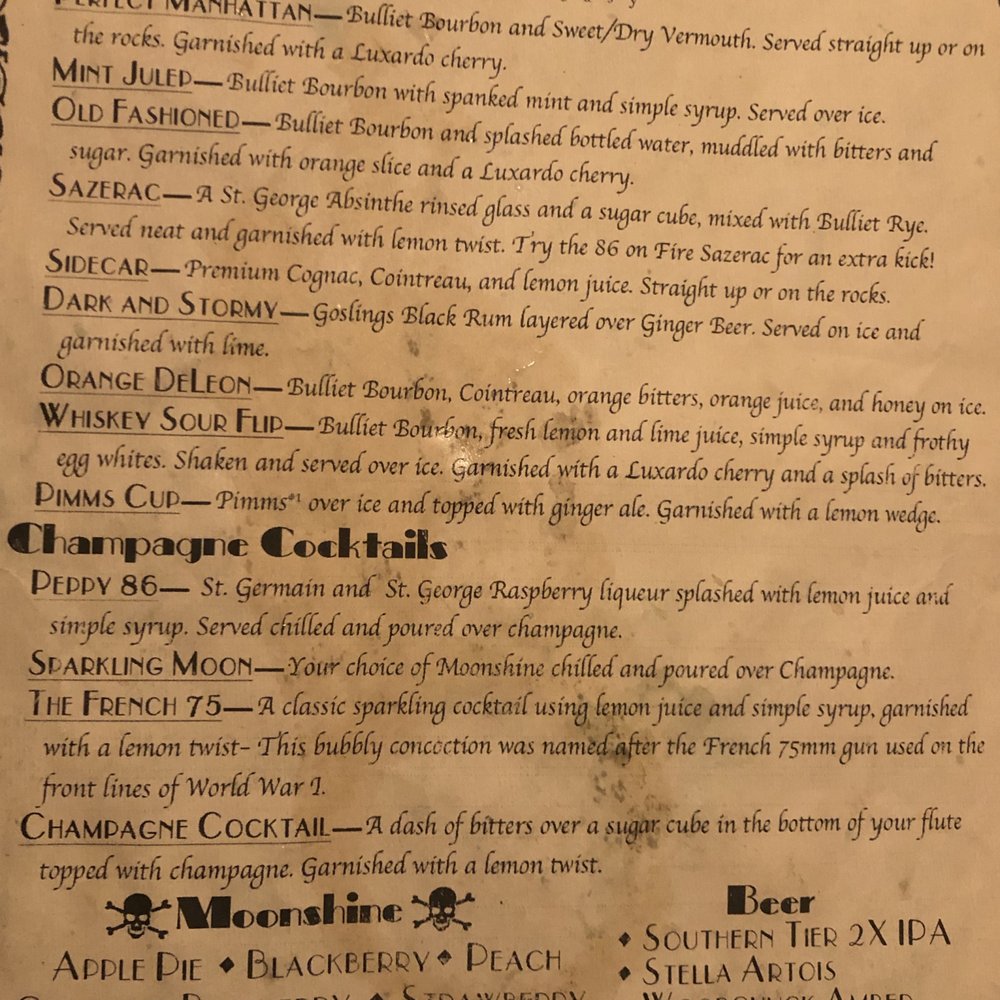 PERFECT MANHATTAN—Bulliet Bourbon and Sweet/Dry Vermouth. Served straight up or on
the rocks. Garnished with a Luxardo cherry.
MINT JULEP—Bulliet Bourbon with spanked mint and simple syrup. Served over ice.
OLD FASHIONED—Bulliet Bourbon and splashed bottled water, muddled with bitters and
sugar. Garnished with orange slice and a Luxardo cherry.
SAZERAC—A St. George Absinthe rinsed glass and a sugar cube, mixed with Bulliet Rye.
Served neat and garnished with lemon twist. Try the 86 on Fire Sazerac for an extra kick!
SIDECAR—Premium Cognac, Cointreau, and lemon juice. Straight up or on the rocks.
DARK AND STORMY—Goslings Black Rum layered over Ginger Beer. Served on ice and
garnished with lime.
ORANGE DELEON—Bulliet Bourbon, Cointreau, orange bitters, orange juice, and honey on ice.
WHISKEY SOUR FLIP—Bulliet Bourbon, fresh lemon and lime juice, simple syrup and frothy
egg whites. Shaken and served over ice. Garnished with a Luxardo cherry and a splash of bitters.
PIMMS CUP—Pimms#1 over ice and topped with ginger ale. Garnished with a lemon wedge.
Champagne Cocktails
PEPPY 86— St. Germain and St. George Raspberry liqueur splashed with lemon juice and
simple syrup. Served chilled and poured over champagne.
SPARKLING MOON—Your choice of Moonshine chilled and poured over Champagne.
THE FRENCH 75—A classic sparkling cocktail using lemon juice and simple syrup, garnished
with a lemon twist- This bubbly concoction was named after the French 75mm gun used on the
front lines of World War I.
CHAMPAGNE COCKTAIL—A dash of bitters over a sugar cube in the bottom of your flute
topped with champagne. Garnished with a lemon twist.
Moonshine
APPLE PIE ♦ BLACKBERRY ♦ PEACH
♦ STRAWBERRY
Beer
♦ SOUTHERN TIER 2X IPA
♦ STELLA ARTOIS
WOODCHUCK AMBER